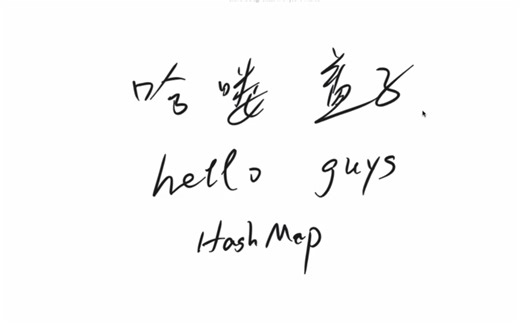 哈喽 盖子.
hello guys
HashMap